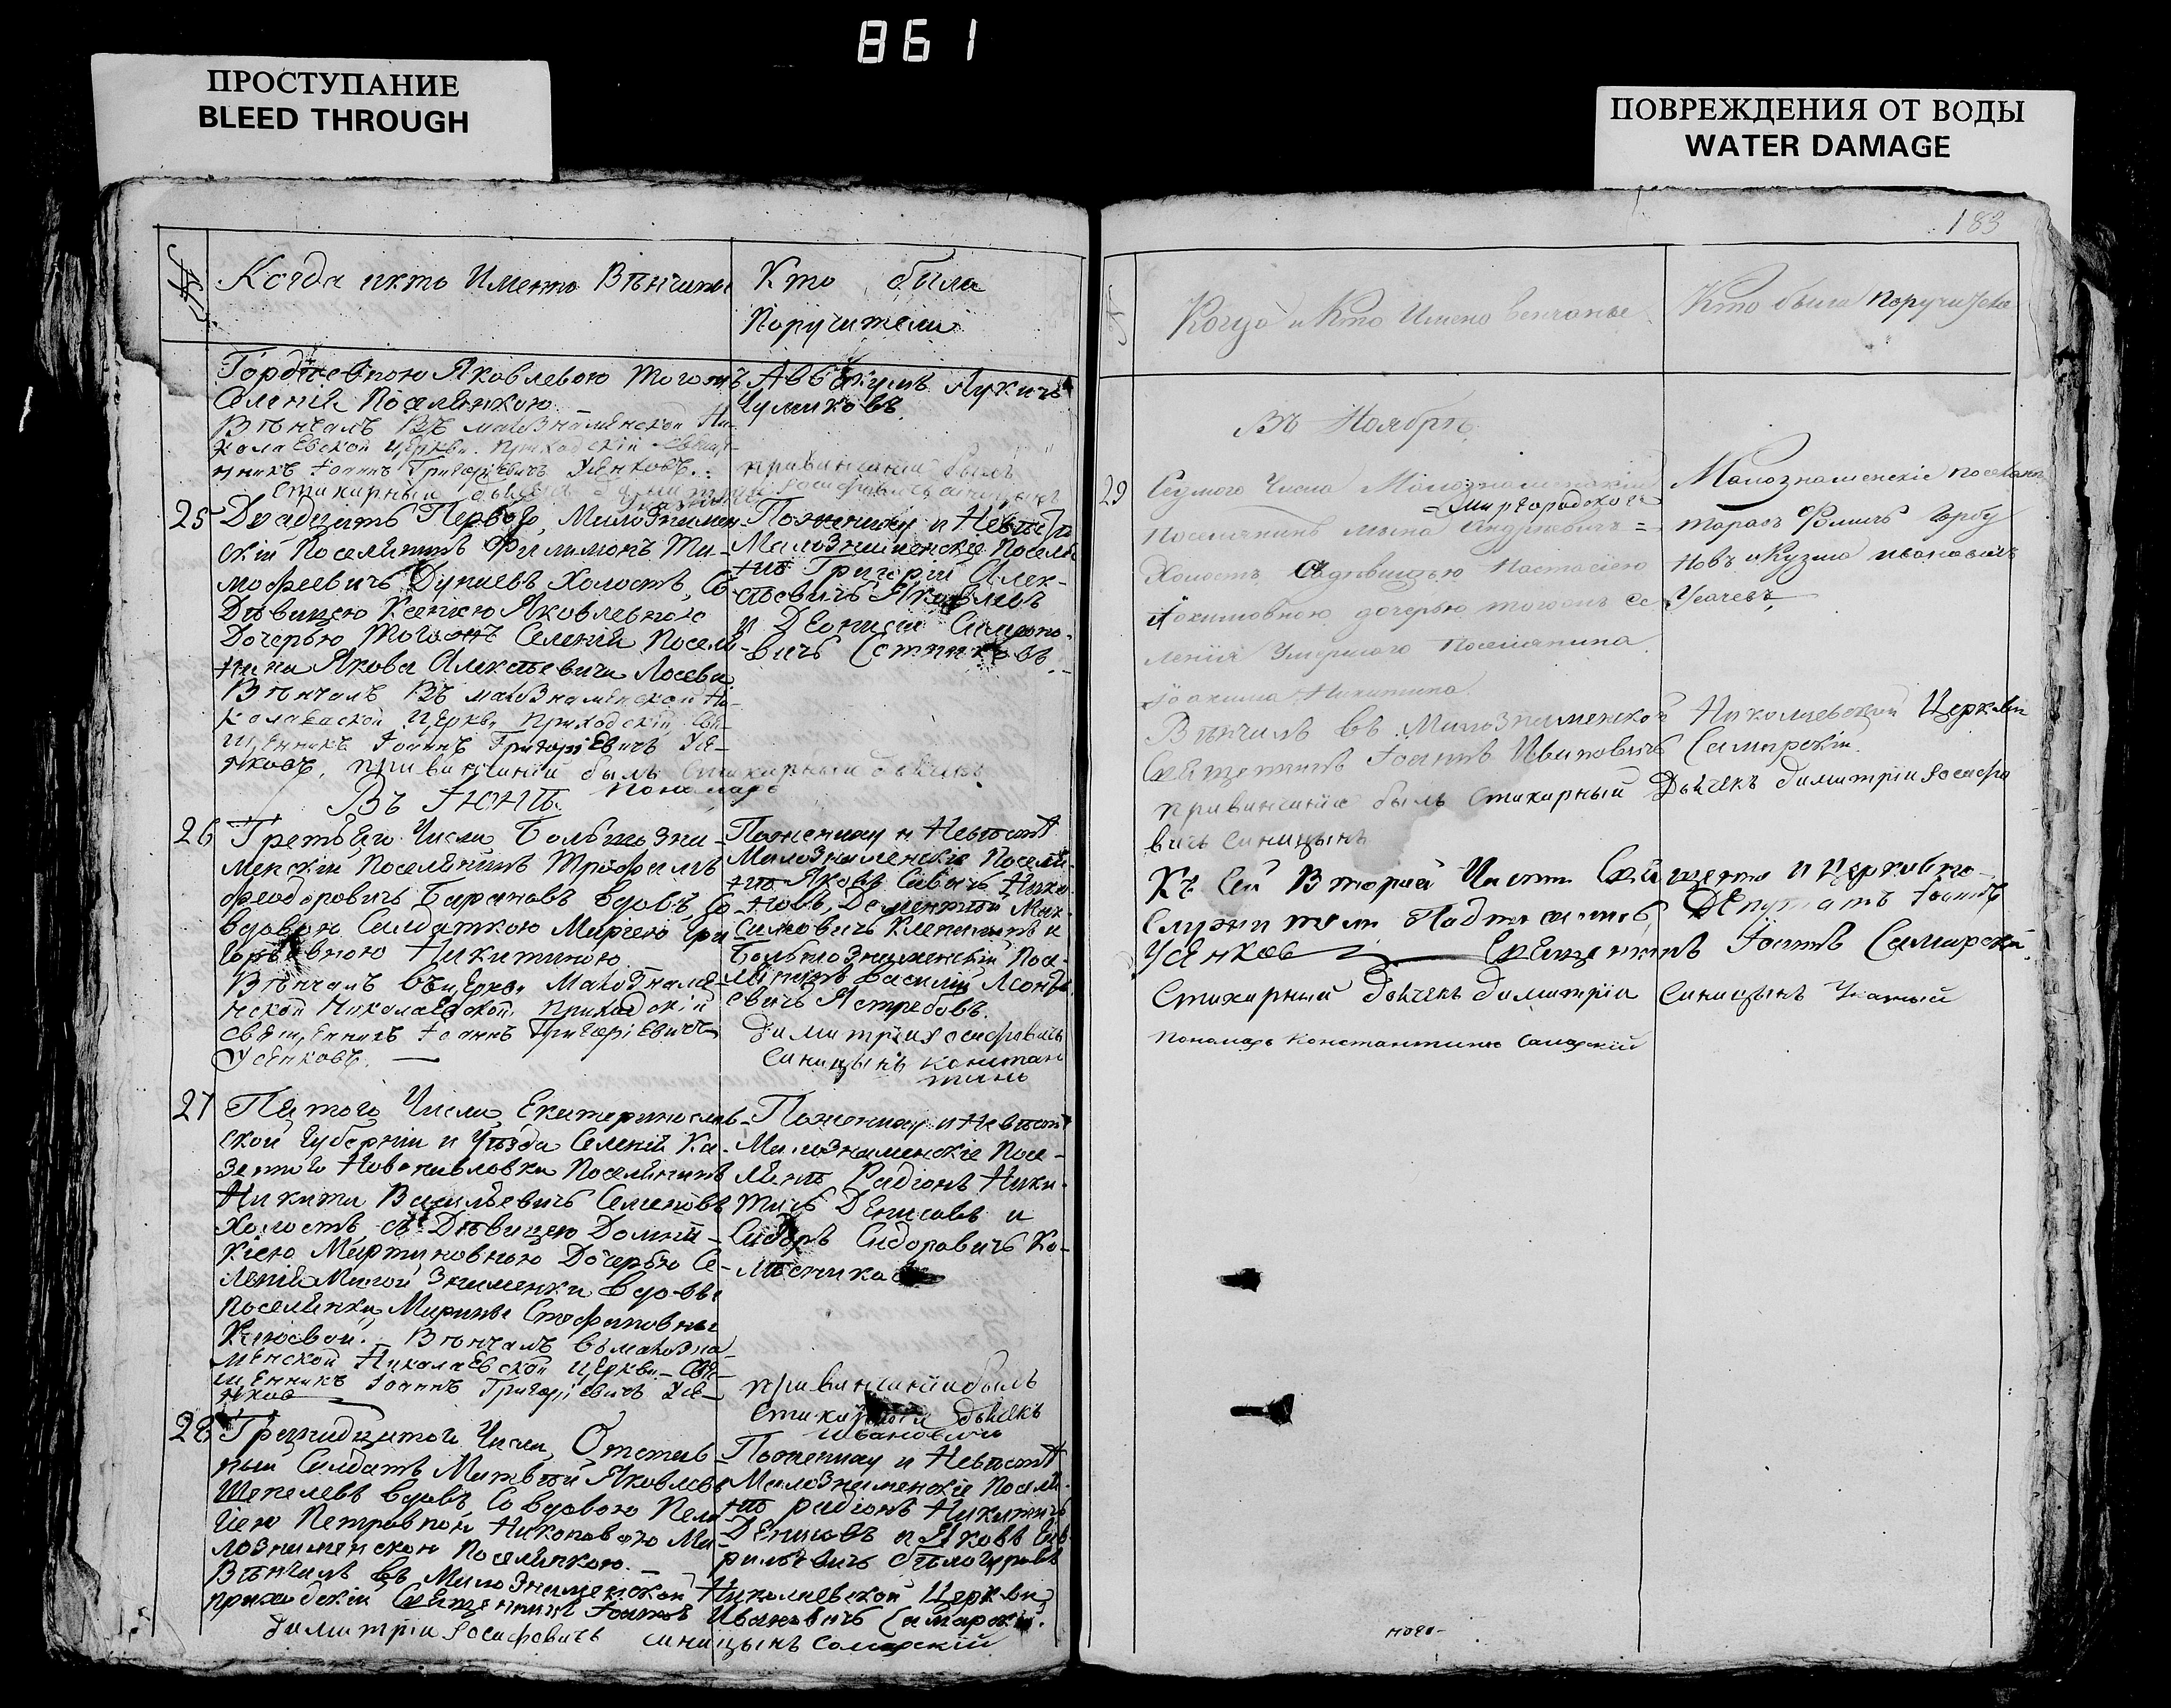 861
ПРОСТУПАНИЕ
BLEED THROUGH
ПОВРЕЖДЕНИЯ ОТ ВОДЫ
WATER DAMAGE
№
Когда икто Именно Венчаны
Кто были
Поручители
Гордѣевною Яковлевою тогожъ
Селенія Поселянкою
Вѣнчалъ Въ малоЗнаменской Ни-
колаЕвской цЕркви приходскій свящ-
нникъ Іоаннъ ГригоріЕвичъ УсЕнковъ.
стихарный дьячекъ Димитрій
Аввакумъ Лукичъ
Чумаковъ
привинчаніи былъ
25 Двадцять Первого, МалоЗнамен-
скій Поселянинъ Филимонъ Ти-
мофеевичъ Дунаевъ Холостъ, Со
Дѣвицею Ксеніею Яковлевною
Дочерью Тогожъ Селенія Поселя-
нина Якова Алексѣевича Лосева
Вѣнчалъ Въ малоЗнамЕнской Ни-
колаЕвской ЦЕркви приходскій Свя-
щЕнникъ Іоаннъ ГригоріЕвичъ УсЕ-
нковъ, привинчаніи былъ стихарный дьячекъ
пономарь
Поженику и Невѣстѣ
МалоЗнаменскіе Поселя-
нѣ Григорій Алек-
сѣевичъ Яковлевъ
и Деонисій
Въ ІЮНѢ
26 Третьяго Числа БольшоЗна-
менскій Поселянинъ Трофимъ
Феодоровичъ Барановъ вдовъ, Со
вдовою Салдаткою Марѳею Гри-
горьевною Никитиною
Вѣнчалъ въ цЕркви МалоЗнамЕ-
нской НиколаЕвской приходскій
свящЕнникъ Іоаннъ ГригоріЕвичъ
УсЕнковъ. —
Поженику и Невѣстѣ
МалоЗнаменскіе Поселя-
нѣ Яковъ Савичъ Нико-
новъ, Дементій Мак-
симовичъ Клепининъ и
БольшоЗнаменскій Посе-
лянинъ Василій Леонть-
евичъ Ястребовъ.
Димитрій Іосафовичъ
синицынъ констан
тинъ
27 Пятого Числа, Екатеринослав-
ской Губерніи и Уѣзда Селенія Ка-
зенного Новопавловки Поселянинъ
Никита Васильевичъ Семеновъ
Холостъ, съ Дѣвицею Домни-
кіею Мартиновною Дочерью Се-
ленія Малой Знаменки вдовы
Поселянки Марины Стефановны
Вѣнчалъ въ малоЗна-
мЕнской НиколаЕвской цЕркви Свя-
щЕнникъ Іоаннъ ГригоріЕвичъ УсЕ-
нков
Поженику и Невѣстѣ
МалоЗнаменскіе Посе-
лянѣ Радіонъ Ники-
тичъ ДЕнисовъ и
Сидоръ Сидоровичъ Ко-
лѣсников
привинчаніи былъ
стихарный дьячекъ
ивановичъ
28 Тридцатого Числа, Отстав-
ный Салдатъ Матвѣй Яковлевъ
Шепелевъ вдовъ, Со вдовою Пела-
гіею Петровною Никоновою Ма-
лознаменскою Поселянкою. —
Вѣнчалъ въ МалоЗнаменской Николаевской Церкви
приходскій Священникъ Іоаннъ Ивановичъ Самарскій.
димитрій Іосафовичъ синицынъ самарскій
Поженику и Невѣстѣ
МалоЗнаменскіе Поселя-
нѣ радіонъ Никитичъ
ДЕнисовъ и Яковъ Гав-
рильевичъ Бѣлогуровъ
183
№
Когда и Кто Имено венчаные
Кто были поручители
Въ Ноябрѣ
29 Седмого Числа Малознаменскій
Поселянинъ
Холостъ, Съ дѣвицею Настасіею
Іоакимовною дочерью тогожъ се-
ленія Умершого Поселянина
Іоакима Никитина
Малознаменскіе поселяне
тарасъ Фомичъ Горбу
новъ и Кузма ивановичъ
Усачевъ
Вѣнчалъ въ МалоЗнаменской Николаевской Церкви
Священникъ Іоаннъ Ивановичъ Самарскій.
привинчаніи былъ стихарный Дьячекъ димитрій Іосафо
вичъ синицынъ
Къ Сей Второй Части Священно и Церковно-
служители Подписались, ДЕпутатъ Іоаннъ
УсЕнков Священникъ Іоаннъ Самарскій.
стихарный дьячекъ димитрій синицынъ Указный
пономарь константинъ самарскій